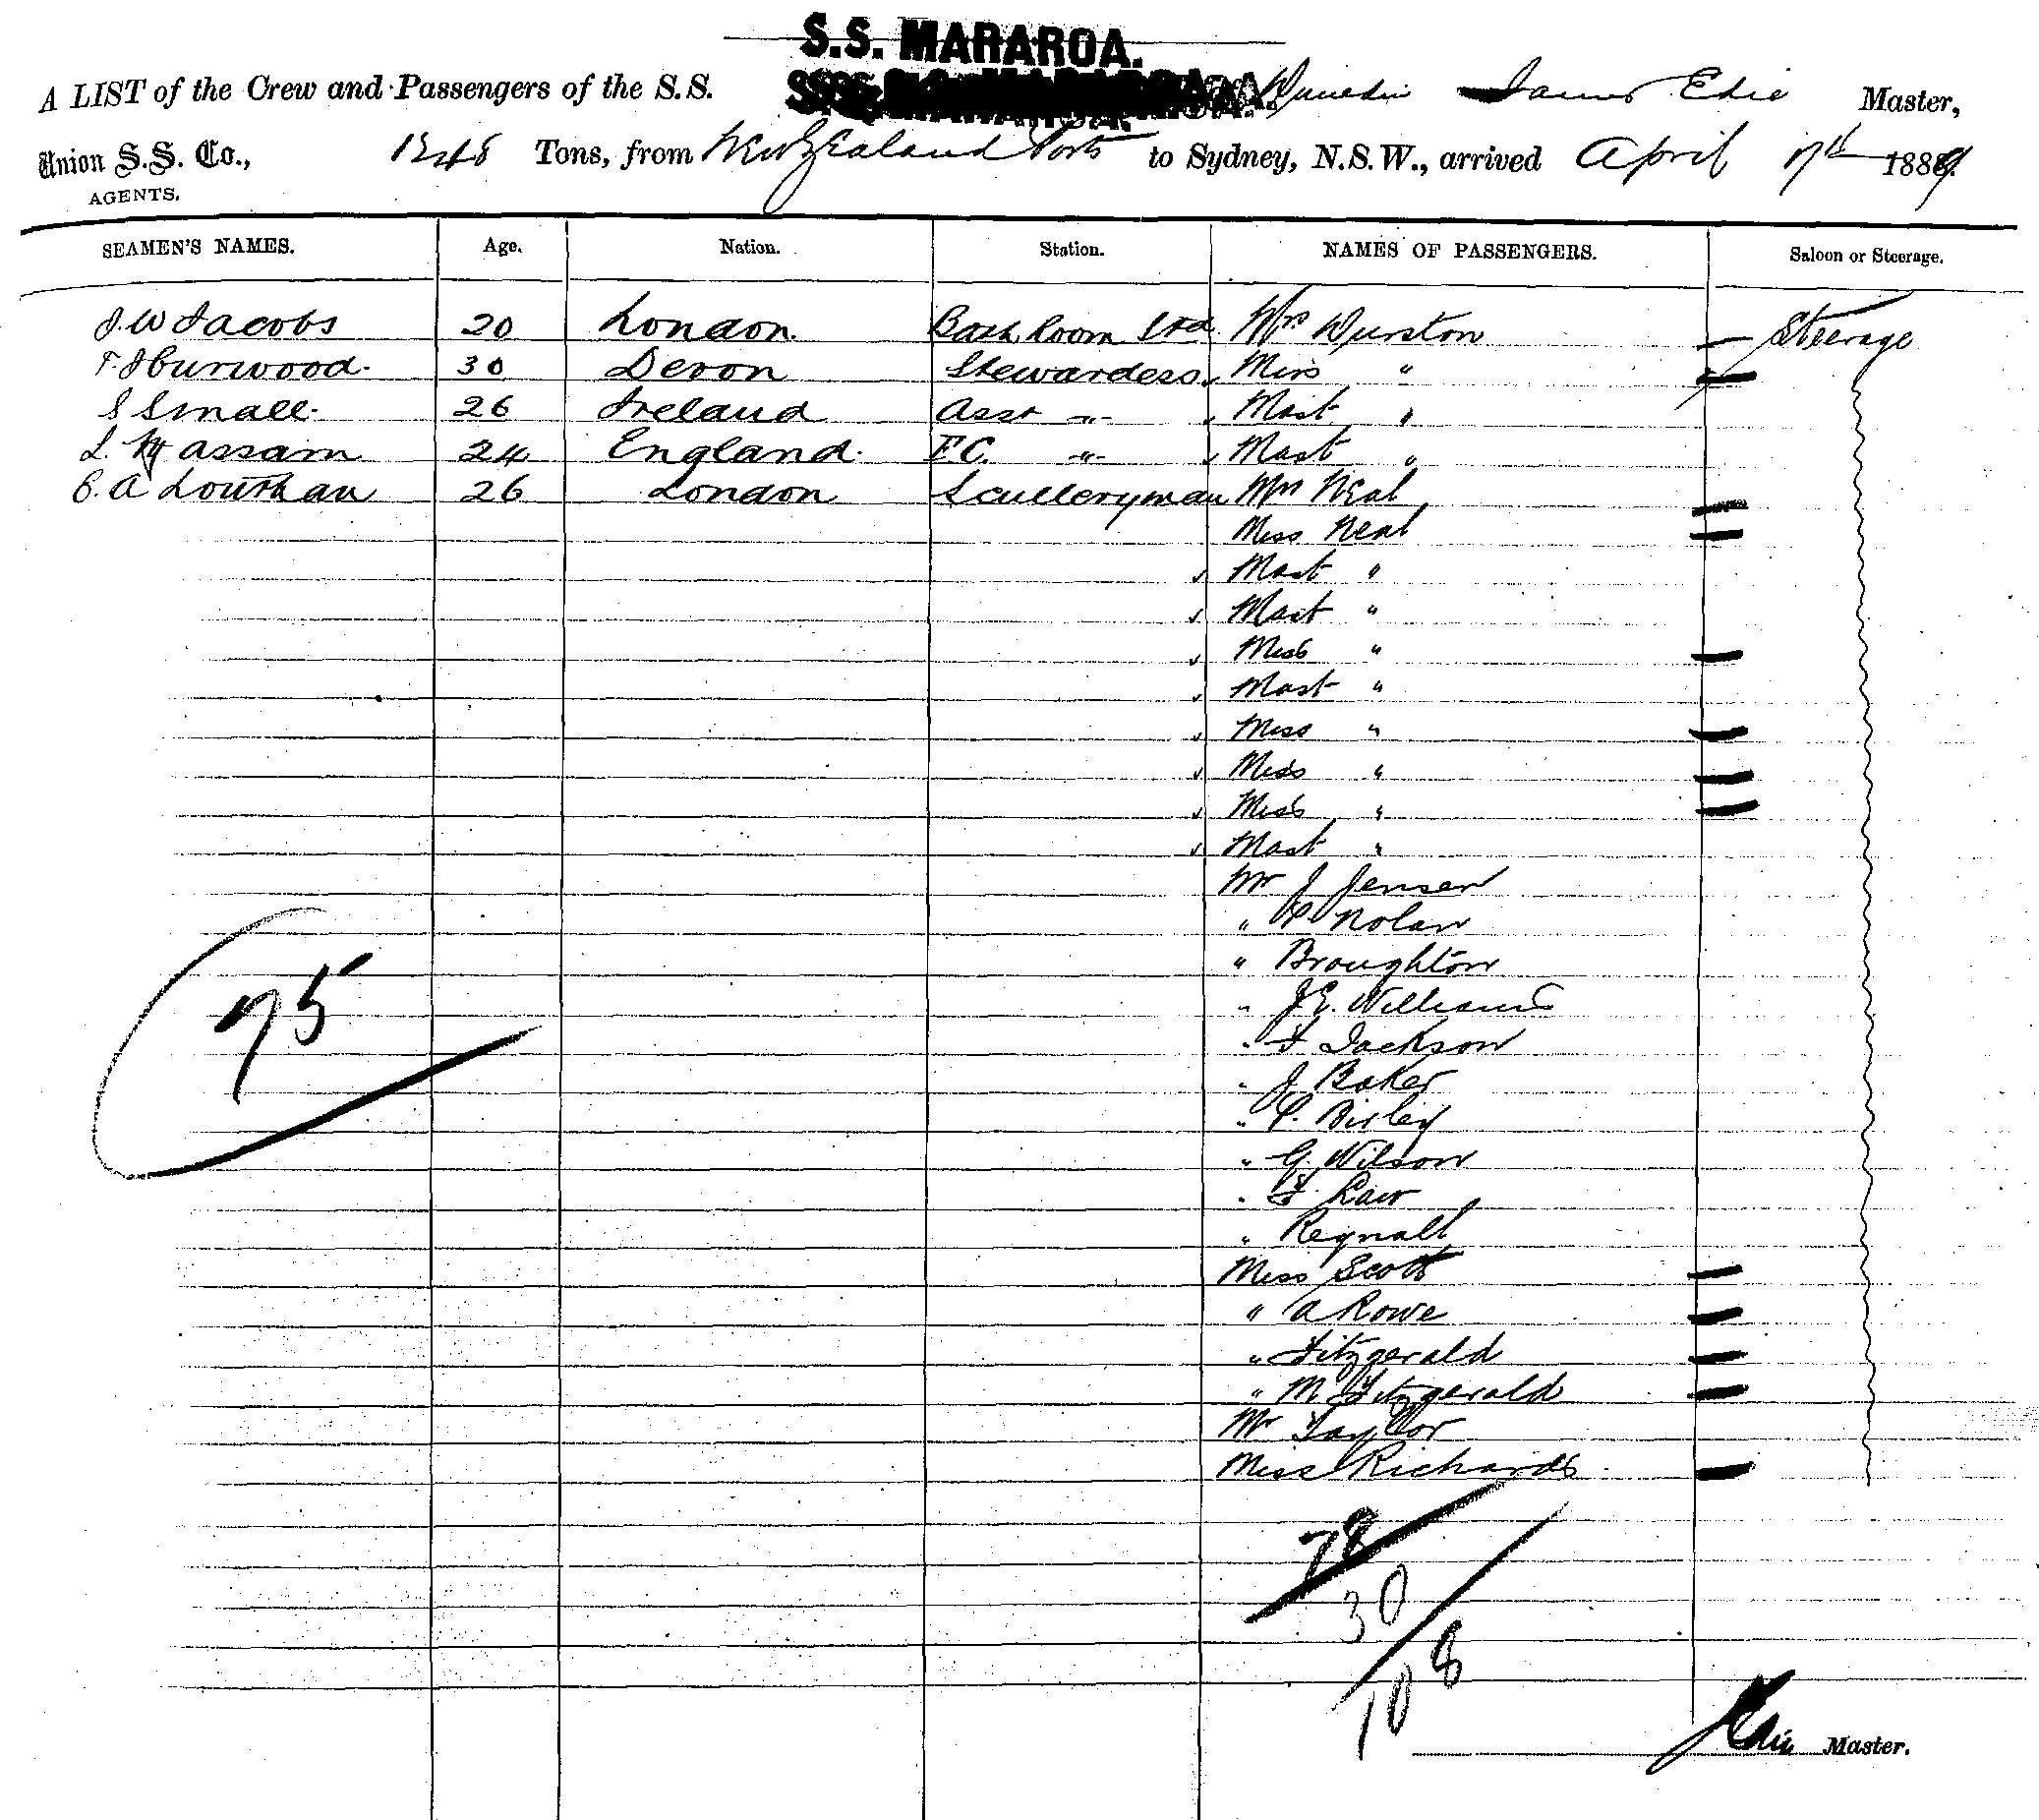 S.S. MARAROA.
A LIST of the Crew and Passengers of the S.S. Dunedin James Edie Master,
Union S.S. Co., 1248 Tons, from New Zealand Ports to Sydney, N.S.W., arrived April 17th 1889
AGENTS.
SEAMEN'S NAMES. Age. Nation. Station. NAMES OF PASSENGERS. Saloon or Steerage.
J. W Jacobs 20 London. Bath Room Std Mrs Durston Steerage
30 Devon Stewardess Miss "
S Small. 26 Ireland Asst -"- Mast "
L. Massam 24 England. F.C. -"- Mast "
A Louthan 26 London Sculleryman Mrs Neal
Miss Neal
Mast "
Mast "
Miss "
Mast "
Miss "
Miss "
Miss "
Mast "
Mr J Jensen
" P Nolan
" Broughton
" J E. Williams
" F Jackson
" J Baker
" P. Birley
" G. Wilson
" F. Law
" Regnall
Miss Scott
" A Rowe
" Fitzgerald
" M Fitzgerald
Mr Taylor
Miss Richards
75
78
30
108
J Edie Master.